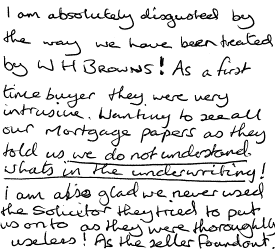 I am absolutely disgusted by
the way we have been treated
by W H BROWNS! As a first
time buyer they were very
intrusive. Wanting to see all
our Mortgage papers as they
told us we do not understand
whats in the underwriting!
I am also glad we never used
the Solicitor they tried to put
us onto as they were thoroughly
useless! As the seller found on.